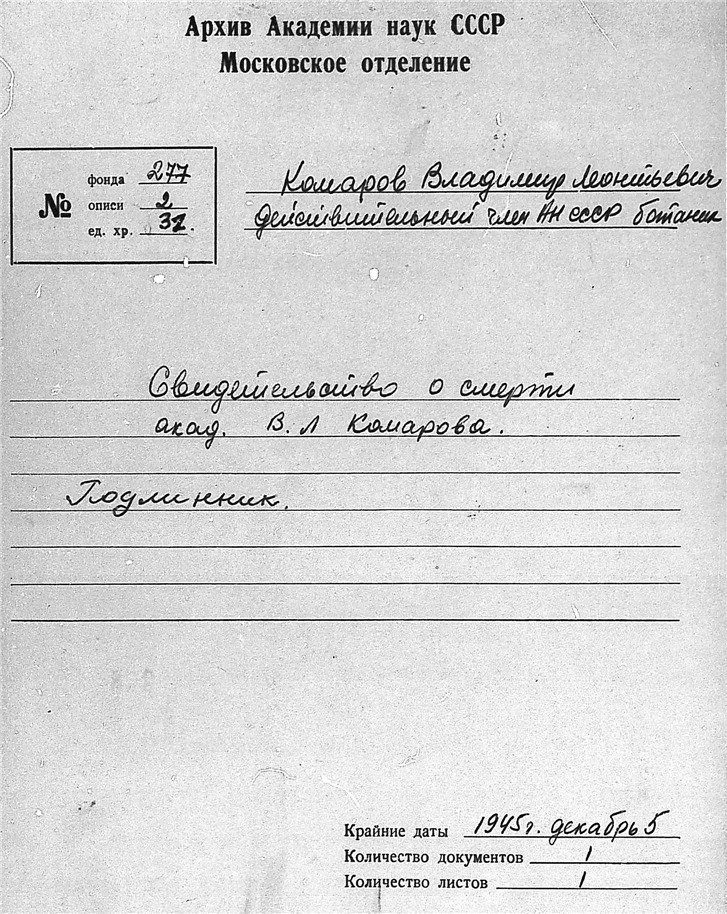 Архив Академии наук СССР
Московское отделение
№
фонда 277
описи 2
ед. хр. 32.
Комаров Владимир Леонтьевич
действительный член АН СССР ботаник
Свидетельство о смерти
акад. В. Л Комарова.
Подлинник.
Крайние даты 1945г. декабрь 5
Количество документов 1
Количество листов 1